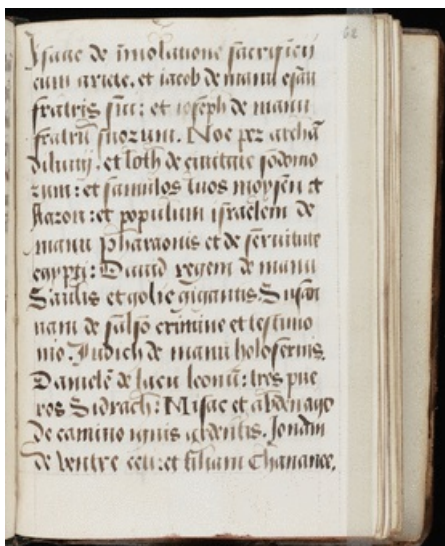 62
Isaac de im̄olatione sacrificii
cum ariete. et iacob de manu esau
fratris sui: et ioseph de manu
fratrū suorum. Noe per archā
diluuij. et loth de ciuitate sodomo
rum: et famulos tuos moysen et
Aaron: et populum israelem de
manu pharaonis et de seruitute
egypti: Dauid regem de manu
Saulis et golie gigantis. Susan
nam de falso crimine et testimo
nio. Iudich de manu holofernis.
Danielē de lacu leonū: tres pue
ros Sidrach: Misac et abdenago
de camino ignis ardentis. Jonam
de ventre ceti: et filiam Chananee.